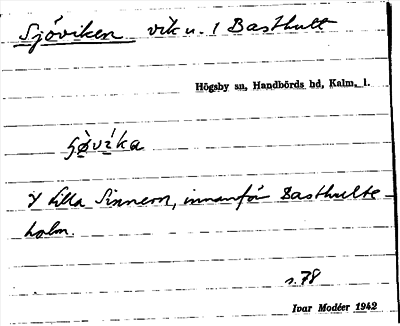 Sjöviken vik u. 1 Basthult
Högsby sn, Handbörds hd, Kalm. l.
I Lilla Sinnern, innanför Basthulte
holm.
s. 78
Ivar Modéer 1942